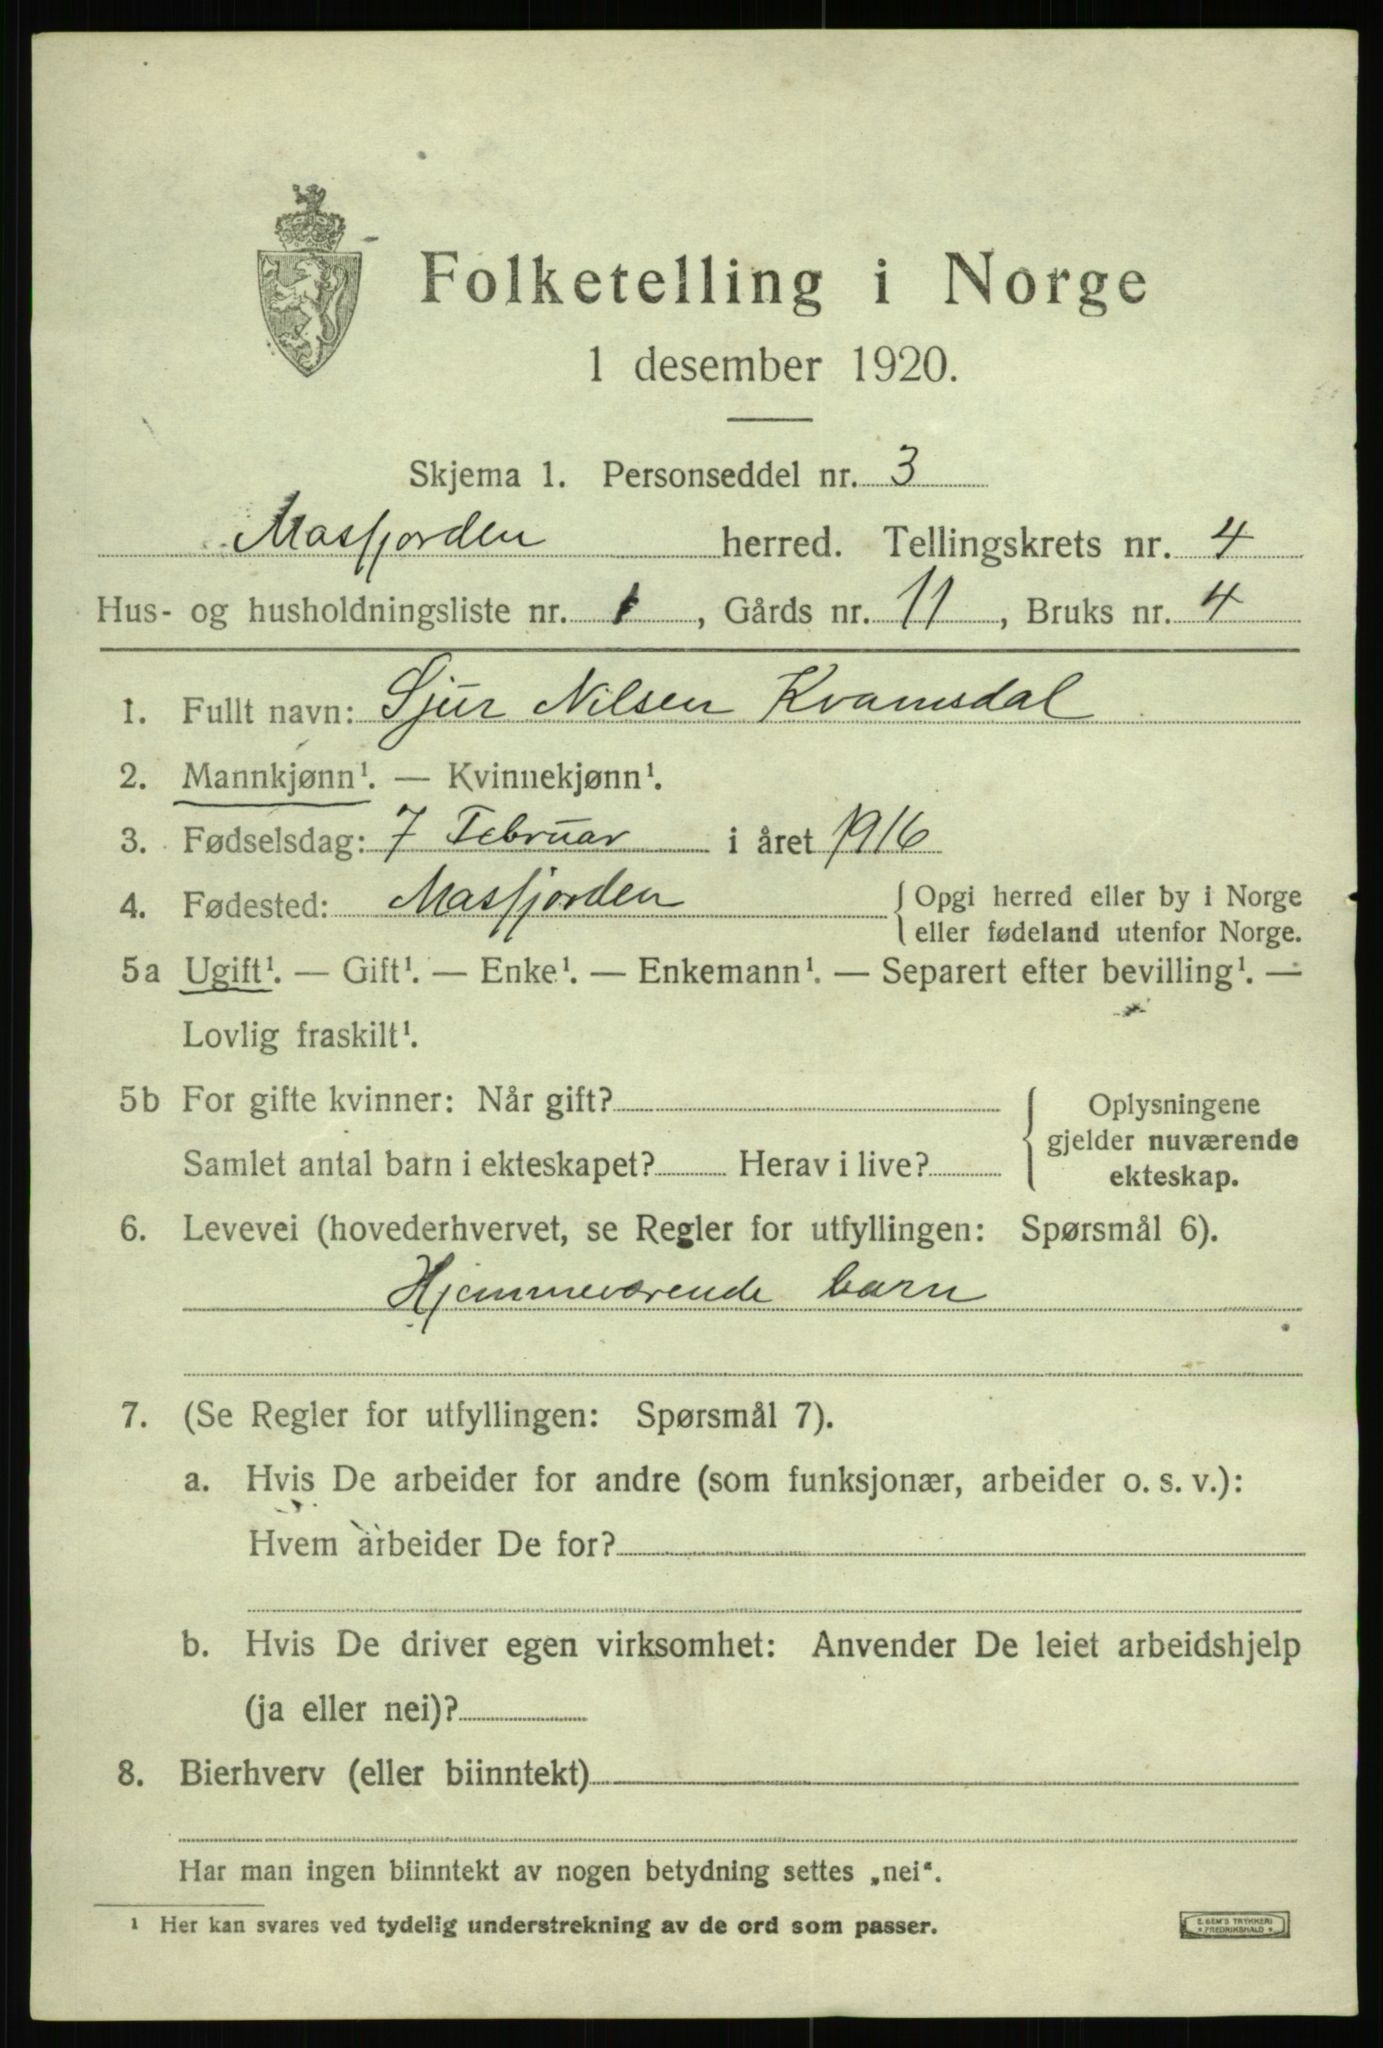 Folketelling i Norge
1 desember 1920.
Skjema 1. Personseddel nr. 3
Masfjorden herred. Tellingskrets nr. 4
Hus- og husholdningsliste nr. 1, Gårds nr. 11, Bruks nr. 4
1. Fullt navn: Sjur Nilsen Kvamsdal
2. Mannkjønn¹. — Kvinnekjønn¹.
3. Fødselsdag: 7 Februar i året 1916
4. Fødested: Masfjorden { Opgi herred eller by i Norge
eller fødeland utenfor Norge.
5a Ugift¹. — Gift¹. — Enke¹. — Enkemann¹. — Separert efter bevilling¹. —
Lovlig fraskilt¹.
5b For gifte kvinner: Når gift? { Oplysningene
gjelder nuværende
Samlet antal barn i ekteskapet? Herav i live?
ekteskap.
6. Levevei (hovederhvervet, se Regler for utfyllingen: Spørsmål 6).
Hjemmeværende barn
7. (Se Regler for utfyllingen: Spørsmål 7).
a. Hvis De arbeider for andre (som funksjonær, arbeider o. s. v.):
Hvem arbeider De for?
b. Hvis De driver egen virksomhet: Anvender De leiet arbeidshjelp
(ja eller nei)?
8. Bierhverv (eller biinntekt)
Har man ingen biinntekt av nogen betydning settes „nei“.
¹ Her kan svares ved tydelig understrekning av de ord som passer.
E. SEM'S TRYKKERI
* FREDRIKSHALD *